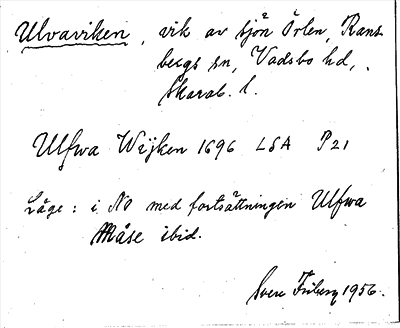 Ulvaviken, vik av sjön Örlen, Rans-
bergs sn, Vadsbo hd,
Skarab. l.
Ulfwa Wijken 1696 LSA P21
Läge: i NO med fortsättningen Ulfwa
Måse ibid.
Sven Friberg 1956.